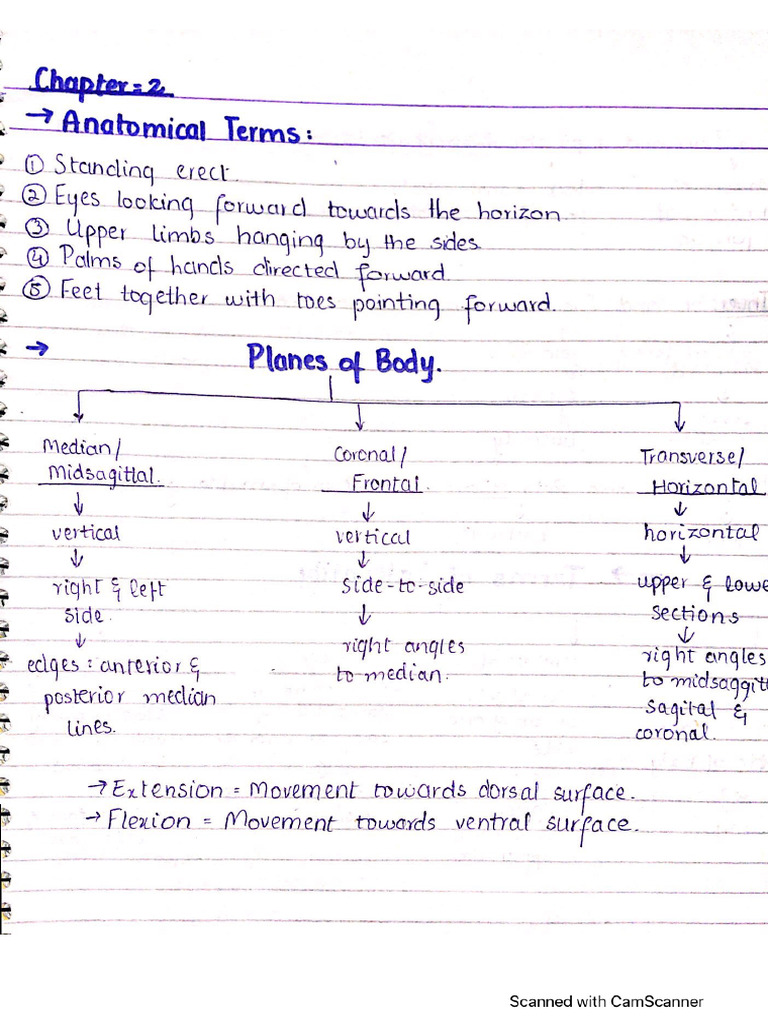 Chapter = 2
→ Anatomical Terms:
① Standing erect.
② Eyes looking forward towards the horizon
③ Upper limbs hanging by the sides
④ Palms of hands directed forward.
⑤ Feet together with toes pointing forward.
→ Planes of Body.
Median/
Midsagittal.
↓
vertical
↓
right & left
side.
↓
edges: anterior &
posterior median
lines.
Coronal/
Frontal
↓
vertical
↓
side-to-side
↓
right angles
to median.
Transverse/
Horizontal
↓
horizontal
↓
upper & lowe
sections
↓
right angles
to midsaggit
sagital &
coronal.
→ Extension = Movement towards dorsal surface.
→ Flexion = Movement towards ventral surface.
Scanned with CamScanner